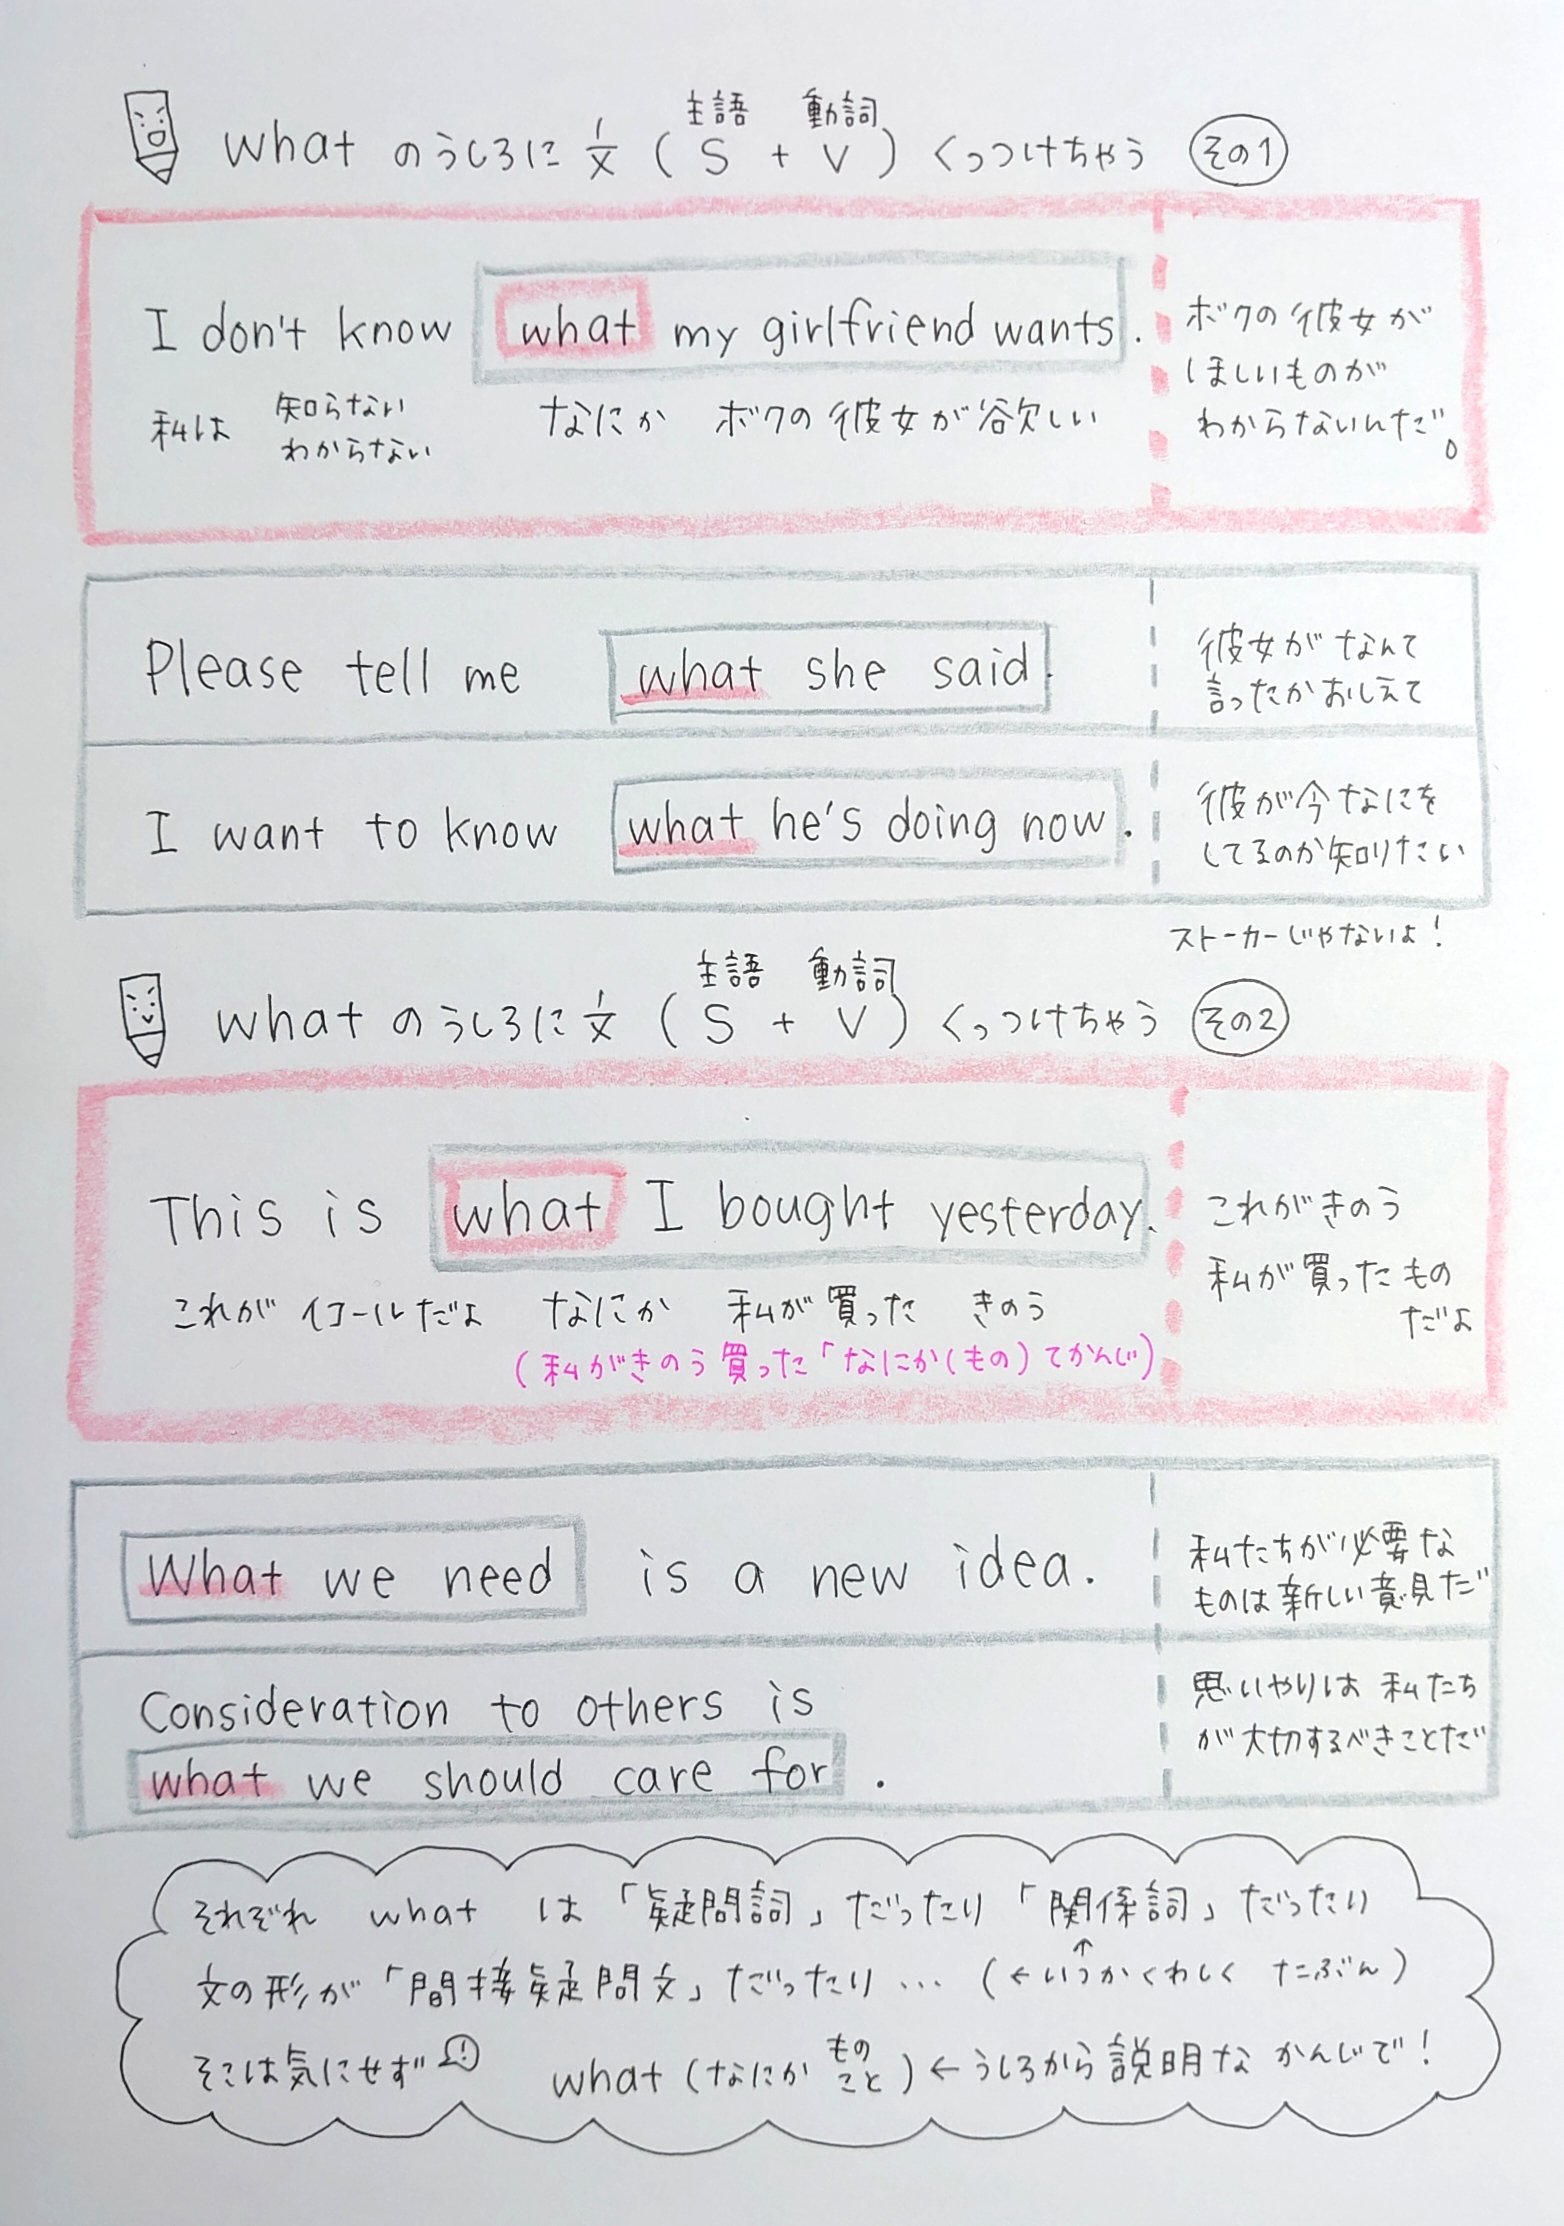 主語 動詞
what のうしろに文 ( S + V ) くっつけちゃう その1
I don't know what my girlfriend wants.
私は 知らない わからない なにか ボクの彼女が欲しい
ボクの彼女が
ほしいものが
わからないんだ。
Please tell me what she said.
彼女がなんて
言ったかおしえて
I want to know what he's doing now.
彼が今なにを
してるのか知りたい
ストーカーじゃないよ!
主語 動詞
what のうしろに文 ( S + V ) くっつけちゃう その2
This is what I bought yesterday.
これが イコールだよ なにか 私が買った きのう
(私がきのう買った「なにか(もの)てかんじ)
これがきのう
私が買ったもの
だよ
What we need is a new idea.
私たちが必要な
ものは新しい意見だ
Consideration to others is
what we should care for.
思いやりは私たち
が大切するべきことだ
それぞれ what は「疑問詞」だったり「関係詞」だったり
文の形が「間接疑問文」だったり… (←いつかくわしく たぶん)
そこは気にせず! what (なにか もの こと) ←うしろから説明な かんじで!